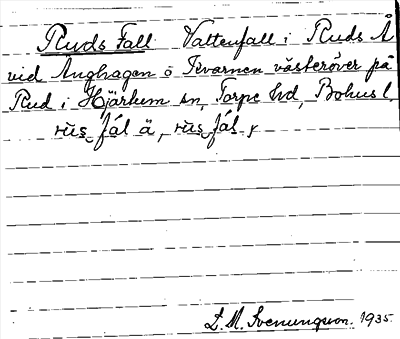 Ruds Fall Vattenfall i Ruds Å
vid Änghagen o Kvarnen västeröver på
Rud i Hjärtum sn, Torpe hd, Bohus l.
rùs fál ä, rùs fál,
L. M. Svenungsson. 1935.